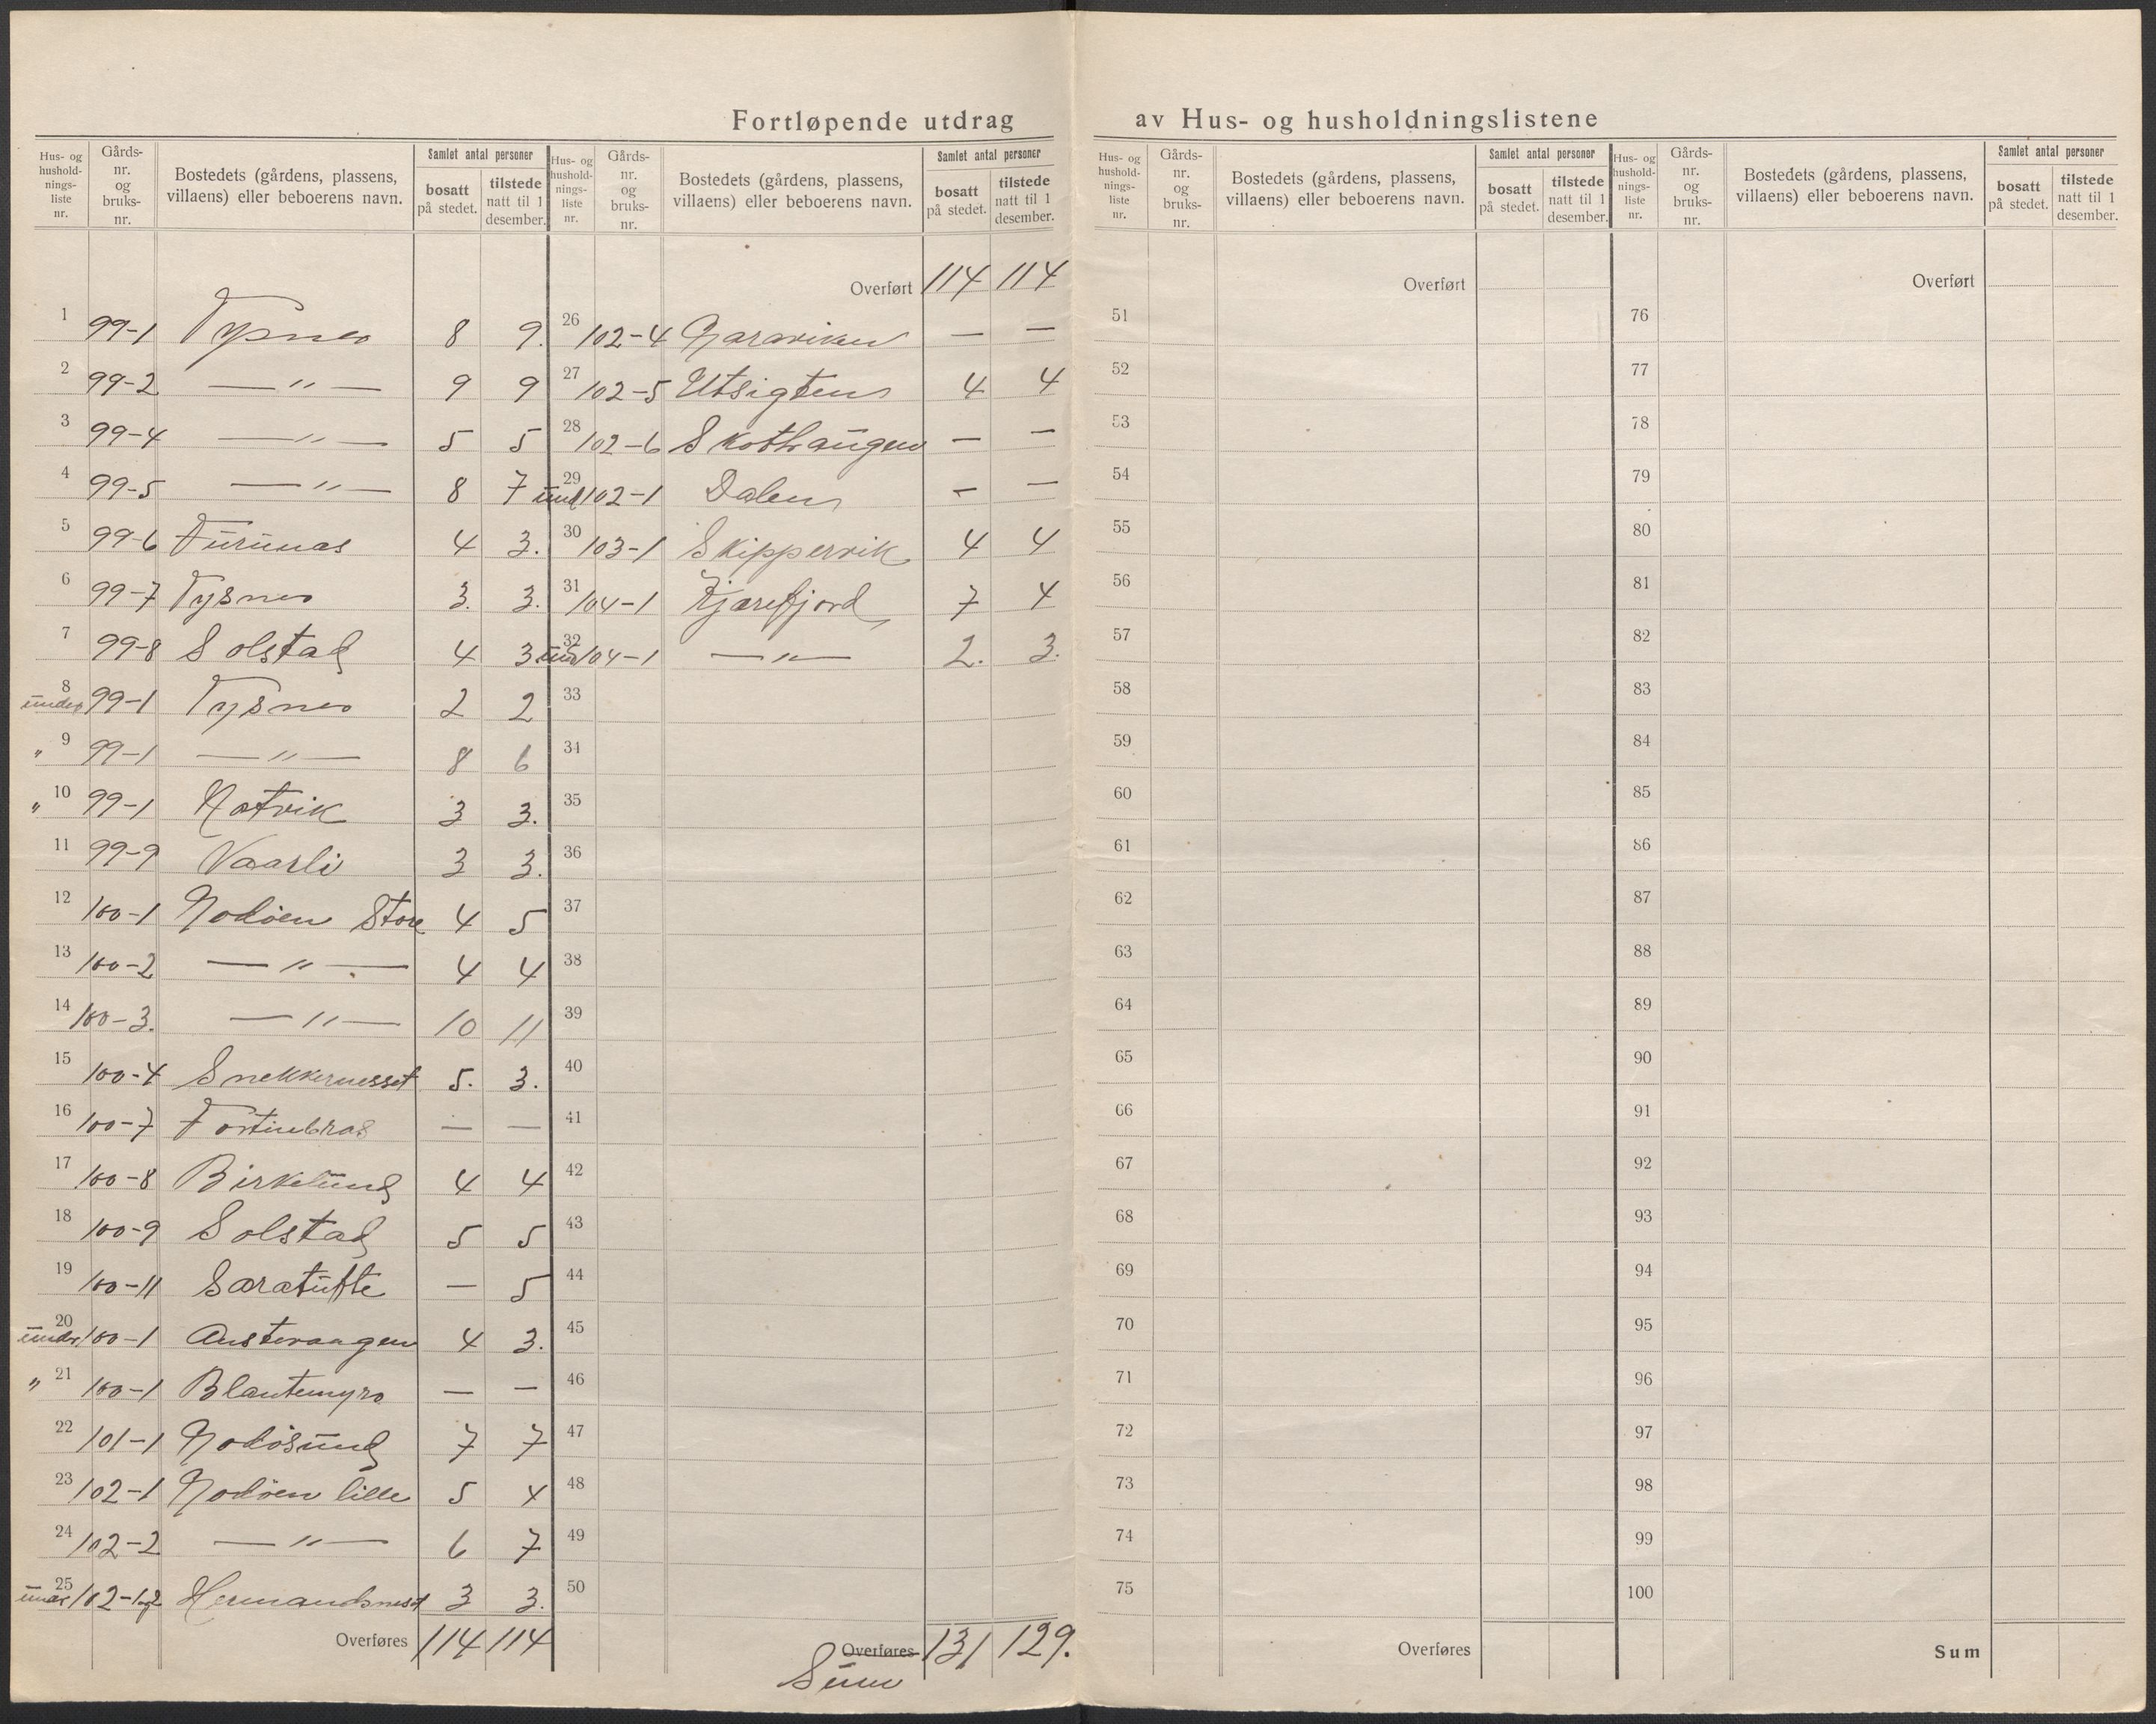 Fortløpende utdrag av Hus- og husholdningslistene
Hus- og hushold-nings-liste nr. Gårds-nr. og bruks-nr. Bostedets (gårdens, plassens, villaens) eller beboerens navn. Samlet antal personer bosatt på stedet. tilstede natt til 1 desember.
1 99-1 Tysnes 8 9.
2 99-2 — " — 9 9
3 99-4 — " — 5 5
4 99-5 — " — 8 7
5 99-6 Furunas 4 3.
6 99-7 Tysnes 3. 3.
7 99-8 Solstad 4 3
8 under 99-1 Tysnes 2 2
" 9 99-1 — " — 8 6
" 10 99-1 Hotvik 3 3.
11 99-9 Vaarli 3 3.
12 100-1 Nodöen Store 4 5
13 100-2 — " — 4 4
14 100-3. — " — 10 11
15 100-4 Snekkernesset 5. 3.
16 100-7 Fortinbras — —
17 100-8 Birkelund 4 4
18 100-9 Solstad 5 5
19 100-11 Saratufte — 5
20 under 100-1 Austervaagen 4 3.
" 21 100-1 Blautemyro — —
22 101-1 Nodösund 7 7
23 102-1 Nodöen lille 5 4
24 102-2 — " — 6 7
25 under 102-1og2 Hermandsnest 3 3.
Overføres 114 114
Hus- og hushold-nings-liste nr. Gårds-nr. og bruks-nr. Bostedets (gårdens, plassens, villaens) eller beboerens navn. Samlet antal personer bosatt på stedet. tilstede natt til 1 desember.
Overført 114 114
26 102-4 Naraviken — —
27 102-5 Utsigten 4 4
28 102-6 Skothaugen — —
29 und 102-1 Dalen — —
30 103-1 Skippervik 4 4
31 104-1 Kjærefjord 7 4
32 und 104-1 — " — 2. 3.
33
34
35
36
37
38
39
40
41
42
43
44
45
46
47
48
49
50
Overføres 131 129.
Sum
Hus- og hushold-nings-liste nr. Gårds-nr. og bruks-nr. Bostedets (gårdens, plassens, villaens) eller beboerens navn. Samlet antal personer bosatt på stedet. tilstede natt til 1 desember.
Overført
51
52
53
54
55
56
57
58
59
60
61
62
63
64
65
66
67
68
69
70
71
72
73
74
75
Overføres
Hus- og hushold-nings-liste nr. Gårds-nr. og bruks-nr. Bostedets (gårdens, plassens, villaens) eller beboerens navn. Samlet antal personer bosatt på stedet. tilstede natt til 1 desember.
Overført
76
77
78
79
80
81
82
83
84
85
86
87
88
89
90
91
92
93
94
95
96
97
98
99
100
Sum